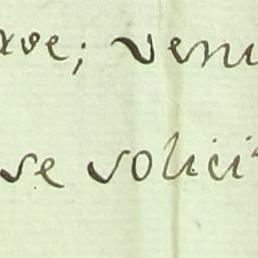 ave; veni
se solici